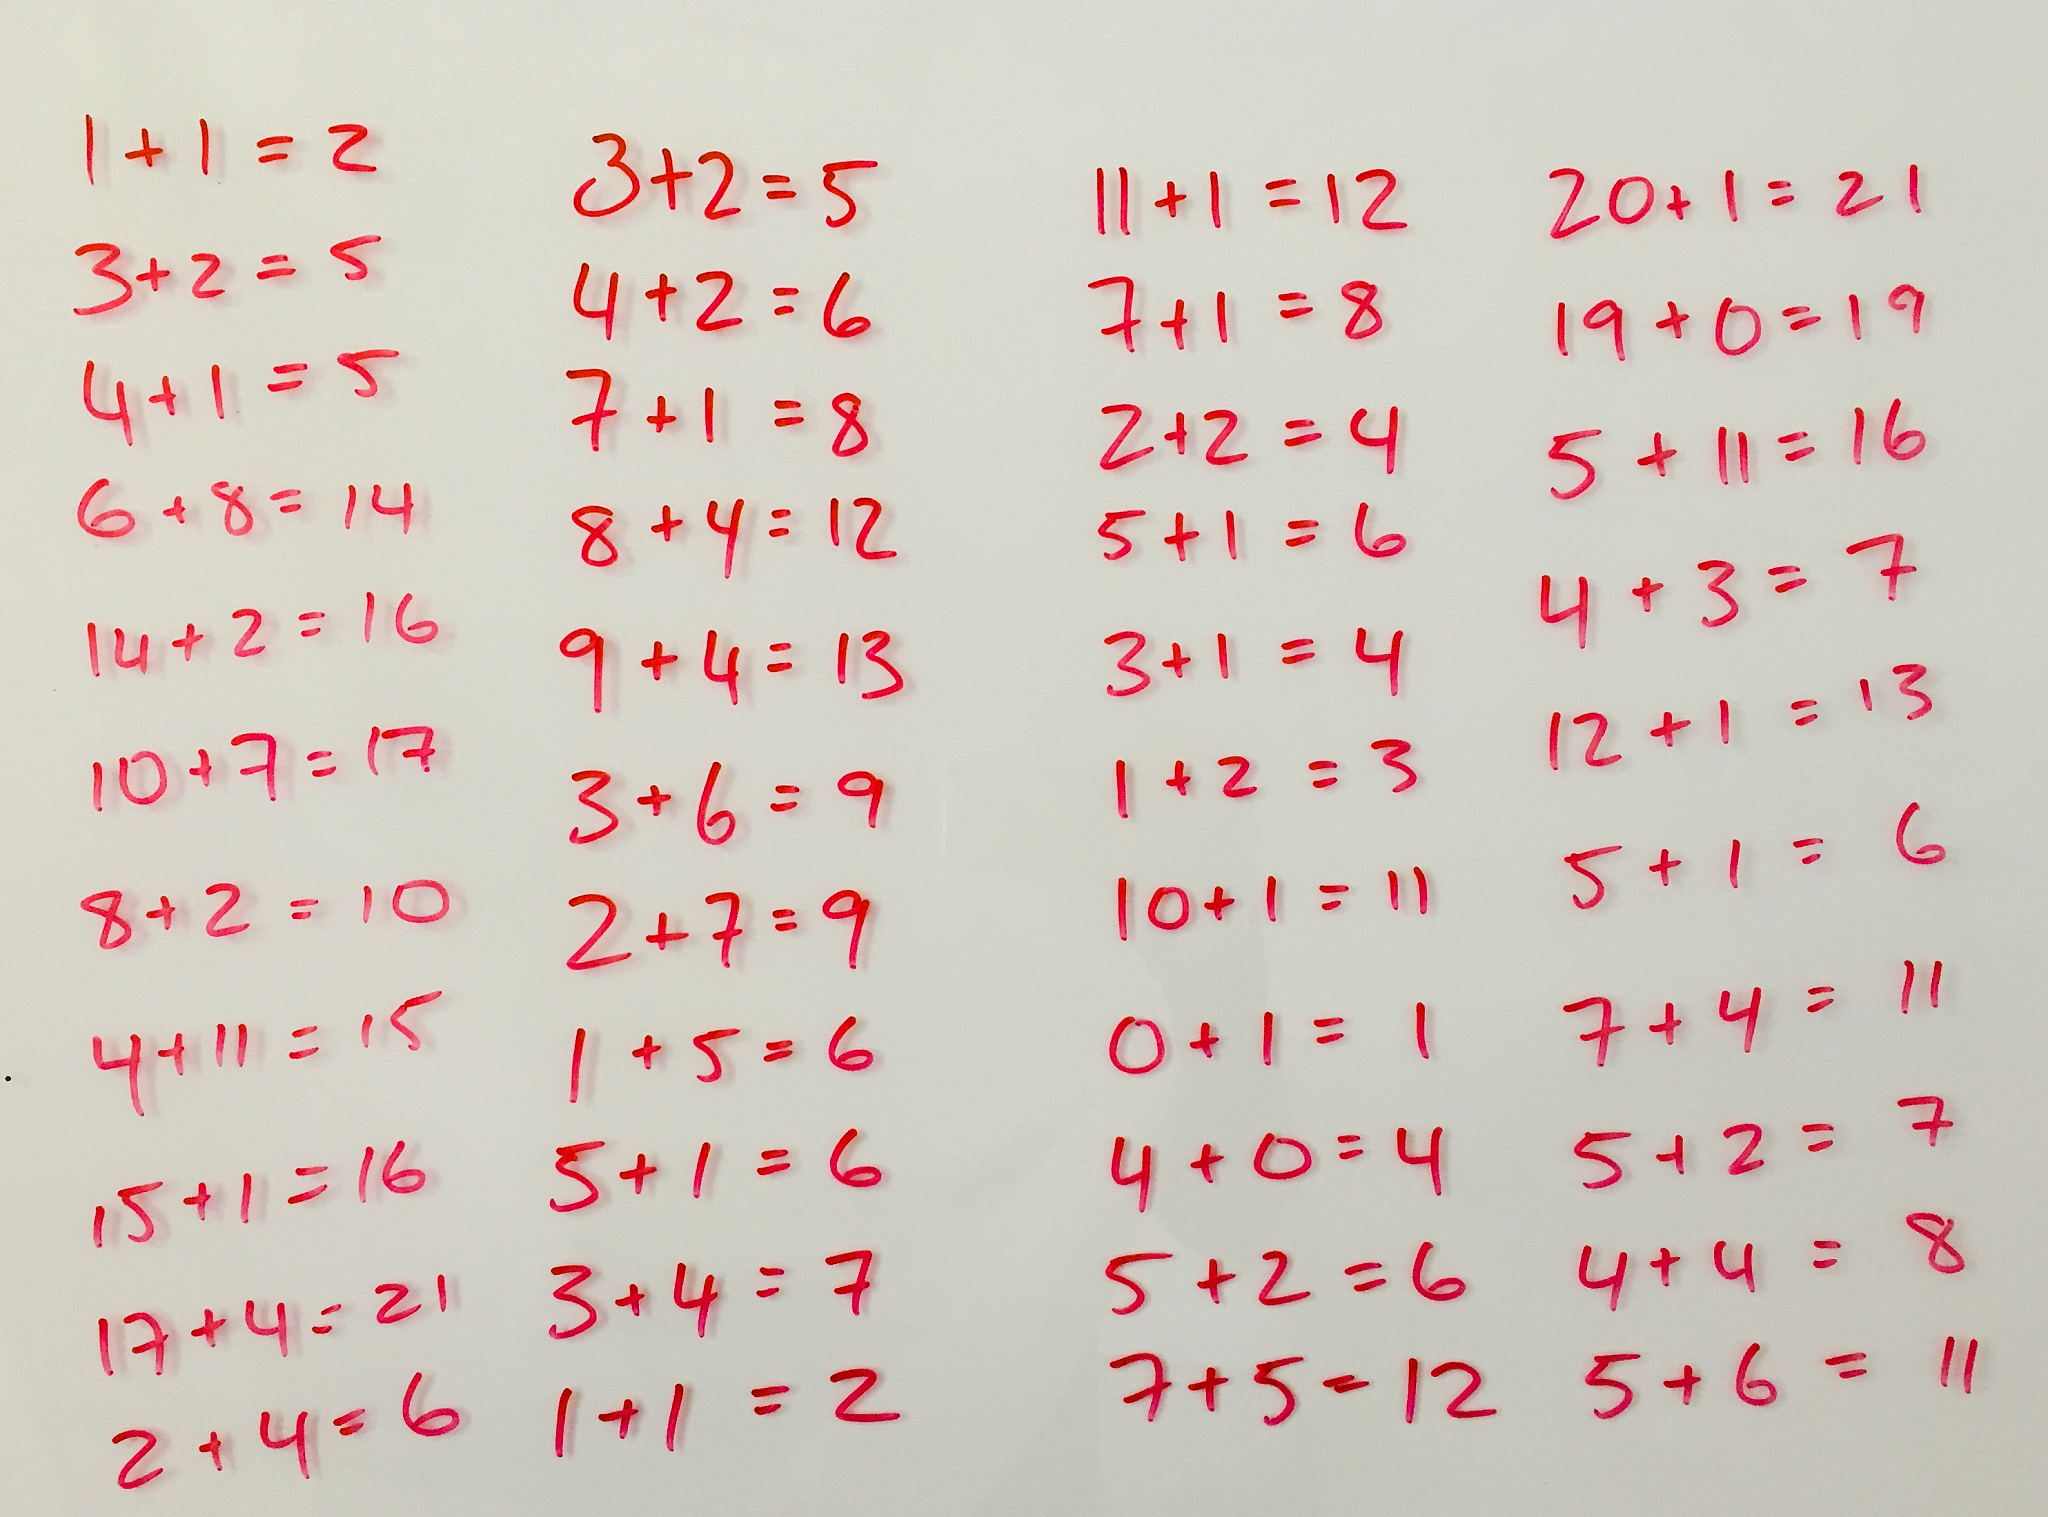 1 + 1 = 2
3 + 2 = 5
4 + 1 = 5
6 + 8 = 14
14 + 2 = 16
10 + 7 = 17
8 + 2 = 10
4 + 11 = 15
15 + 1 = 16
17 + 4 = 21
2 + 4 = 6
3 + 2 = 5
4 + 2 = 6
7 + 1 = 8
8 + 4 = 12
9 + 4 = 13
3 + 6 = 9
2 + 7 = 9
1 + 5 = 6
5 + 1 = 6
3 + 4 = 7
1 + 1 = 2
11 + 1 = 12
7 + 1 = 8
2 + 2 = 4
5 + 1 = 6
3 + 1 = 4
1 + 2 = 3
10 + 1 = 11
0 + 1 = 1
4 + 0 = 4
5 + 2 = 6
7 + 5 = 12
20 + 1 = 21
19 + 0 = 19
5 + 11 = 16
4 + 3 = 7
12 + 1 = 13
5 + 1 = 6
7 + 4 = 11
5 + 2 = 7
4 + 4 = 8
5 + 6 = 11